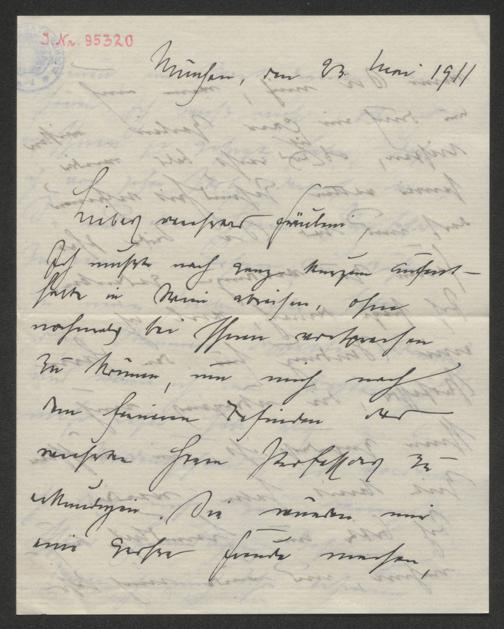 J. Nr. 95320
München, den 23. Mai 1911
Liebes verehrtes Fräulein,
Ich mußte nach ganz kurzem Aufent-
halte in Wien abreisen, ohne
nochmals bei Ihnen vorsprechen
zu können, um mich nach
dem ferneren Befinden des
verehrten Herrn Professors zu
erkundigen. Sie würden mir
eine große Freude machen,